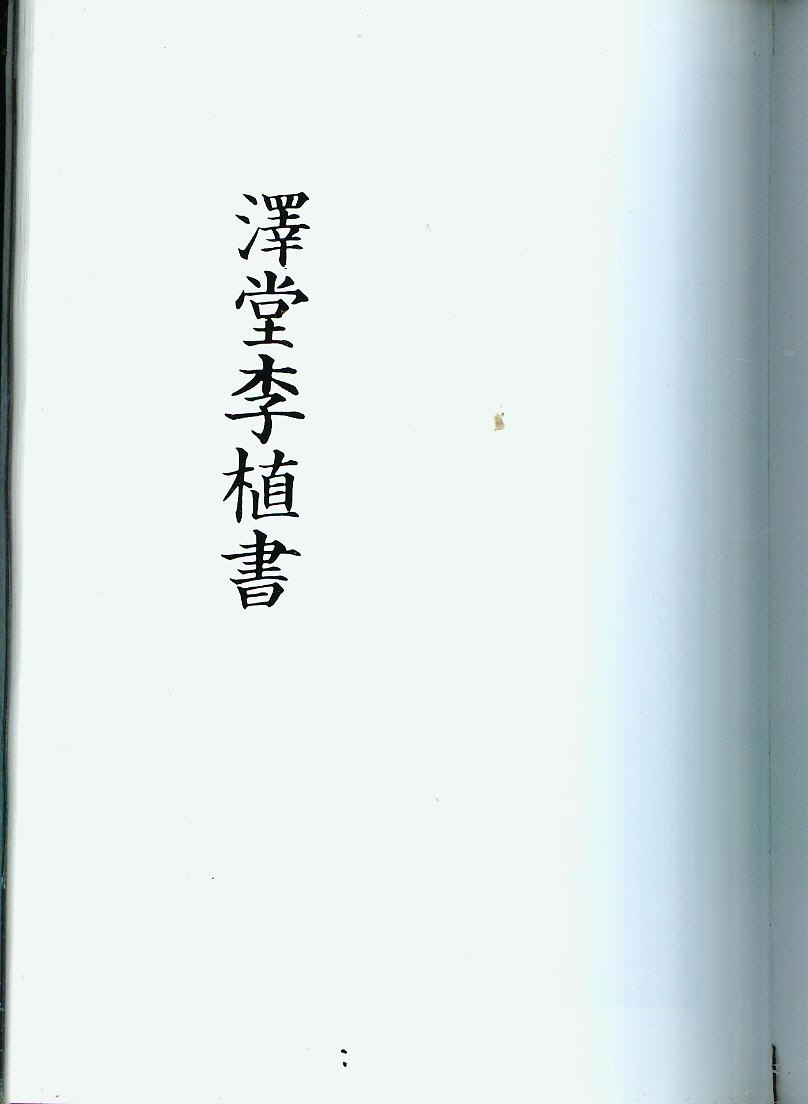 澤堂李植書